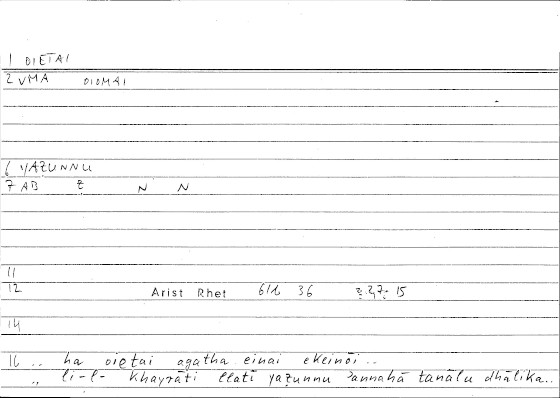 1 OIETAI
2 VMA OIOMAI
6 YAẒUNNU
7 AB Ẓ N N
11
12 Arist Rhet 61b 36 27, 15
14
16 .. ha oietai agatha einai ekeinōi ..
„ li-l- khayrāti llatī yaẓunnu ʾannahā tanālu dhālika..